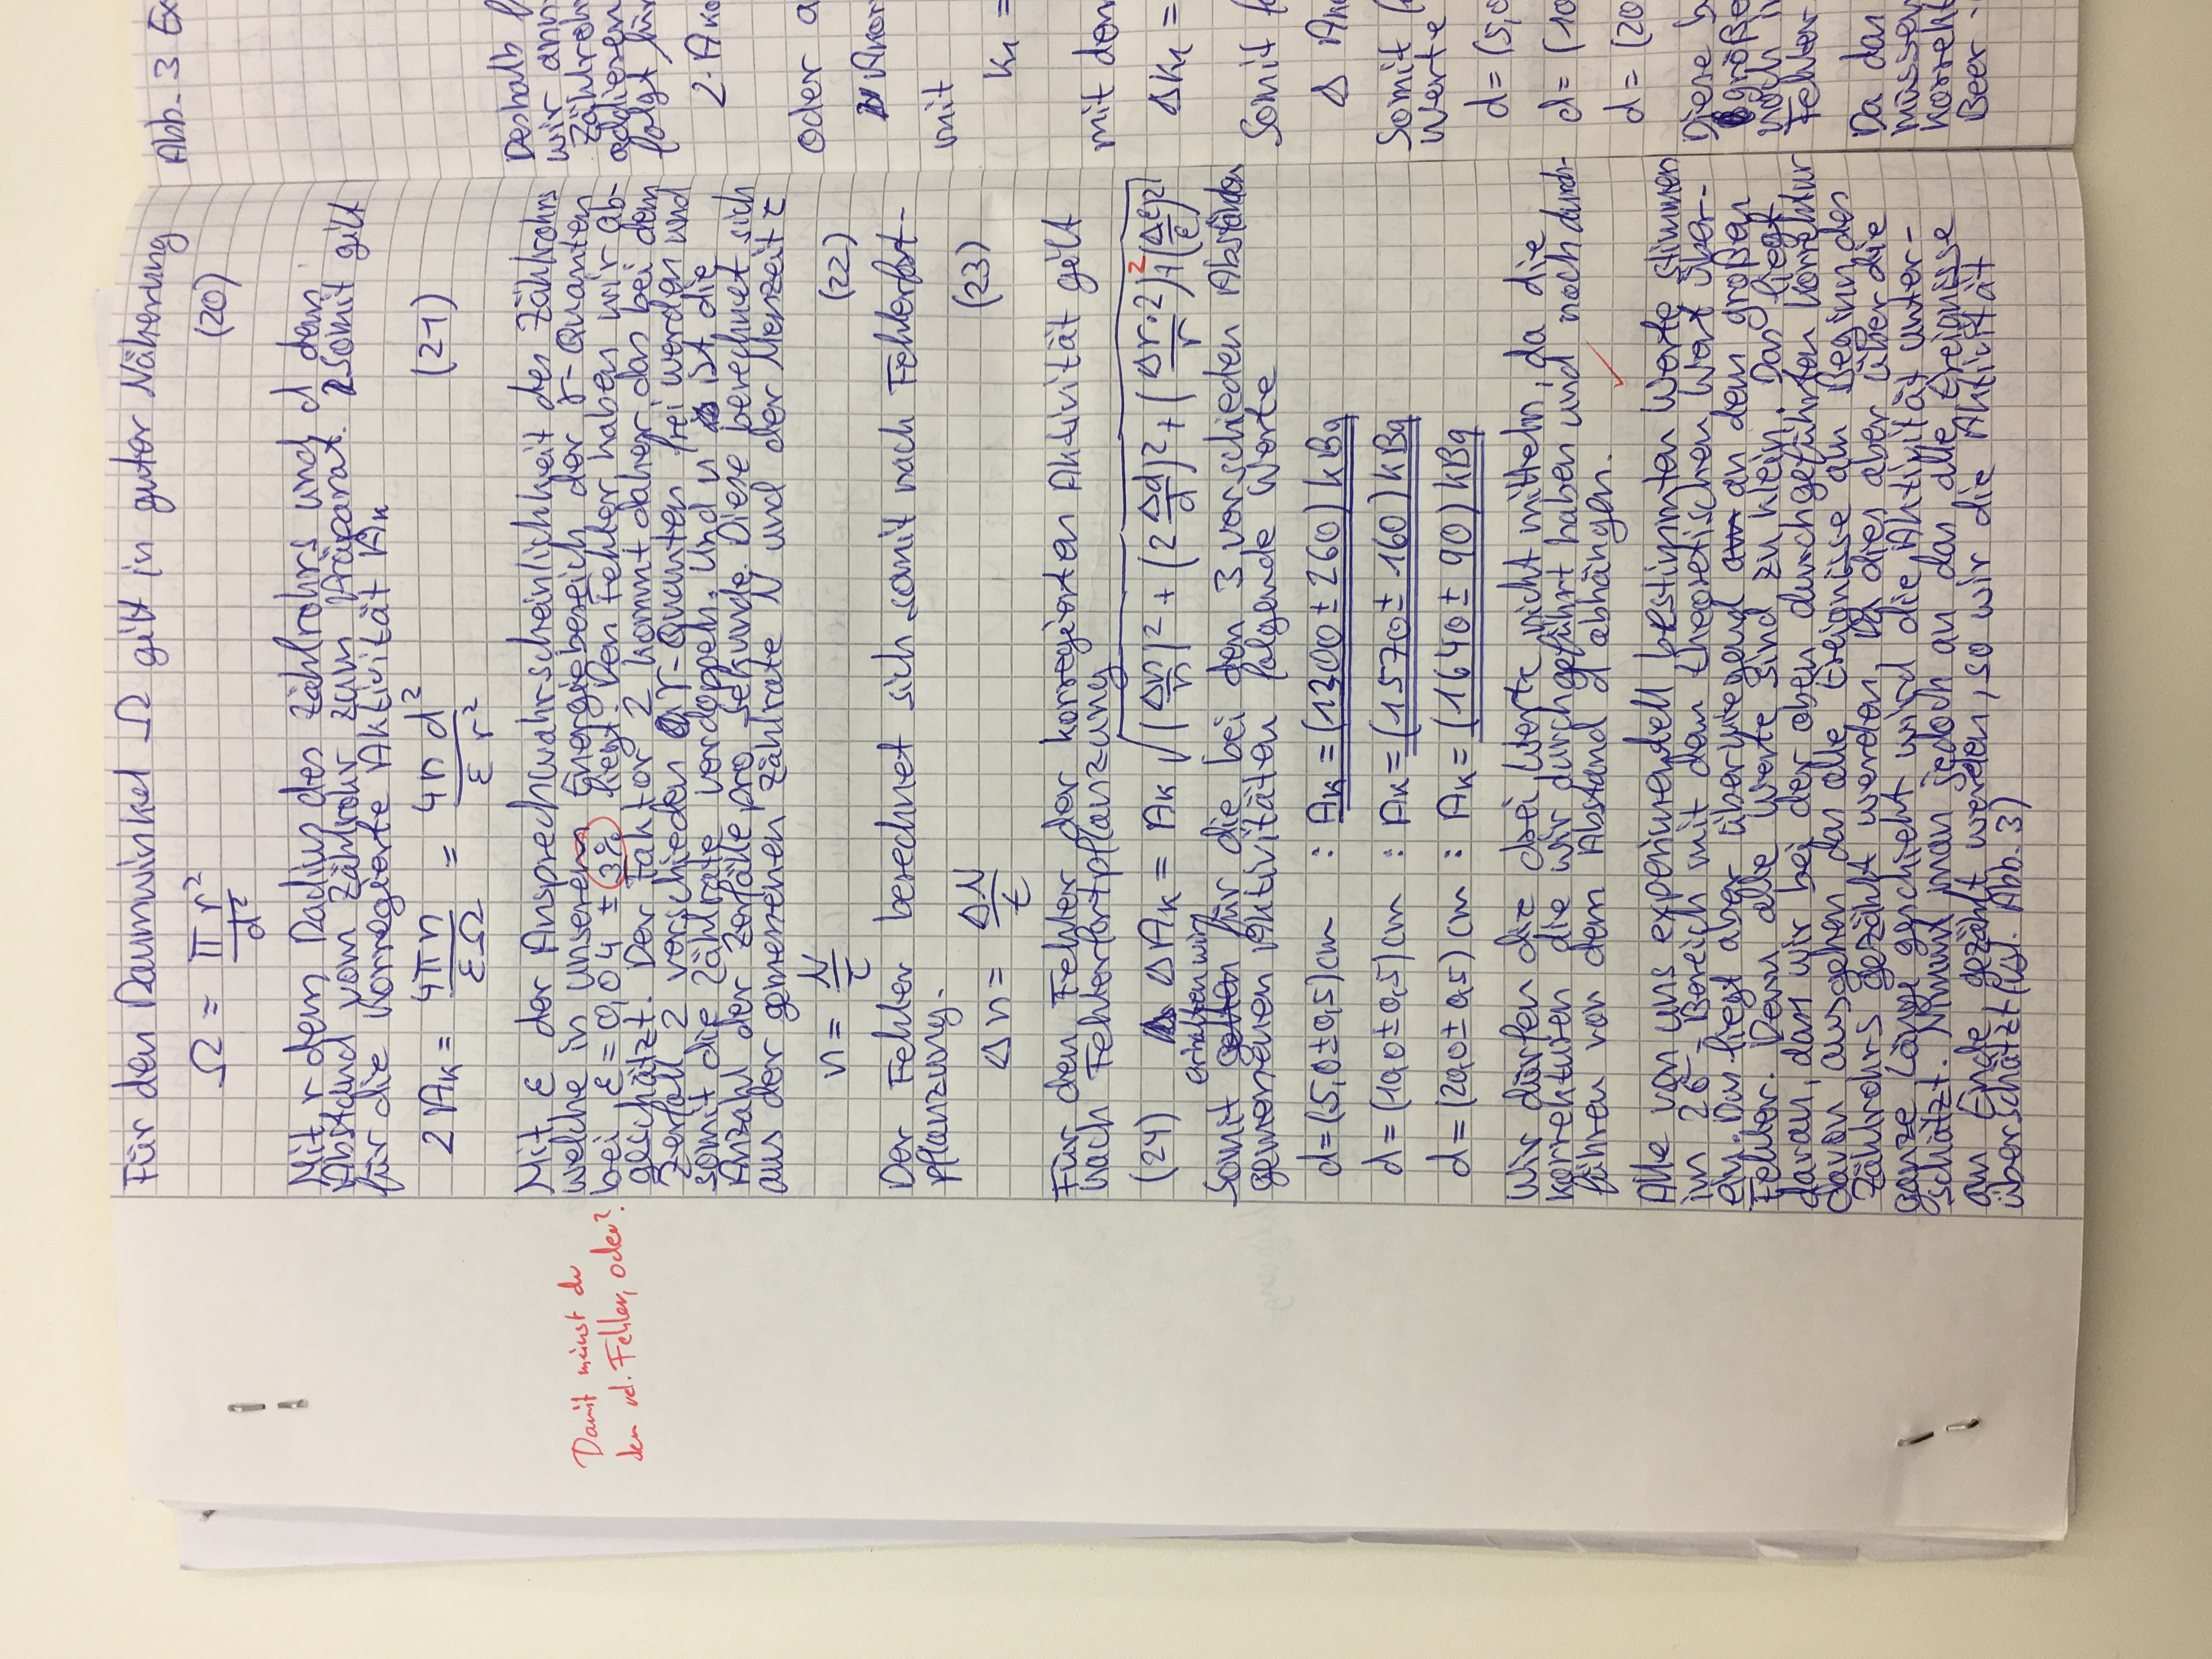 Für den Raumwinkel Ω gilt in guter Näherung
Ω = π r² / d² (20)
Mit r dem Radius des Zählrohrs und d dem
Abstand vom Zählrohr zum Präparat. Somit gilt
für die korregierte Aktivität A_K
2 A_K = 4πn / εΩ = 4 n d² / ε r² (21)
Mit ε der Ansprechwahrscheinlichkeit des Zählrohrs
welche in unserem Energiebereich der γ-Quanten
bei ε = 0,04 ± 3% liegt. Den Fehler haben wir ab-
geschätzt. Der Faktor 2 kommt daher, das bei dem
Zerfall 2 verschieden γ-Quanten frei werden und
somit die Zählrate verdoppeln. Und n ist die
Anzahl der Zerfälle pro Sekunde. Diese berechnet sich
aus der gemessenen Zählrate N und der Messzeit τ
n = N / τ (22)
Der Fehler berechnet sich somit nach Fehlerfort-
pflanzung.
Δn = ΔN / t (23)
Für den Fehler der korregierten Aktivität gilt
nach Fehlerfortpflanzung
(24) ΔA_K = A_K √((Δn/n)² + (2 Δd/d)² + (Δr·2/r)² + (Δε/ε)²)
erhalten wir
Somit für die bei den 3 verschieden Abständen
gemessenen Aktivitäten folgende Werte
d = (5,0 ± 0,5) cm : A_K = (1300 ± 260) kBq
d = (10,0 ± 0,5) cm : A_K = (1570 ± 160) kBq
d = (20,0 ± 0,5) cm : A_K = (1640 ± 90) kBq
Wir dürfen die drei Werte nicht mitteln, da die
Korrekturen die wir durchgeführt haben und noch durch-
führen von dem Abstand d abhängen. ✓
Alle von uns experimentell bestimmten Werte stimmen
im 2σ-Bereich mit dem theoretischen Wert über-
ein. Das liegt aber überwiegend an dem großen
Fehler. Denn alle Werte sind zu klein. Das liegt
daran, dass wir bei der oben durchgeführten Korrektur
davon ausgehen das alle Ereignisse am Beginn des
Zählrohrs gezählt werden. Da dies aber über die
ganze Länge geschieht wird die Aktivität unter-
schätzt. Nimmt man jedoch an das alle Ereignisse
am Ende gezählt werden, so wir die Aktivität
überschätzt (vgl. Abb. 3)
Damit meinst du
den rel. Fehler, oder?
Abb. 3
Deshalb
wir
addieren
folgt für
oder
mit
k₁ =
mit dem
Δk₁ =
Somit
Somit
Werte
d = (5,0
d = (10
d = (20
Diese
größe
noch
Fehler
Da das
müssen
Korrekt
Beer